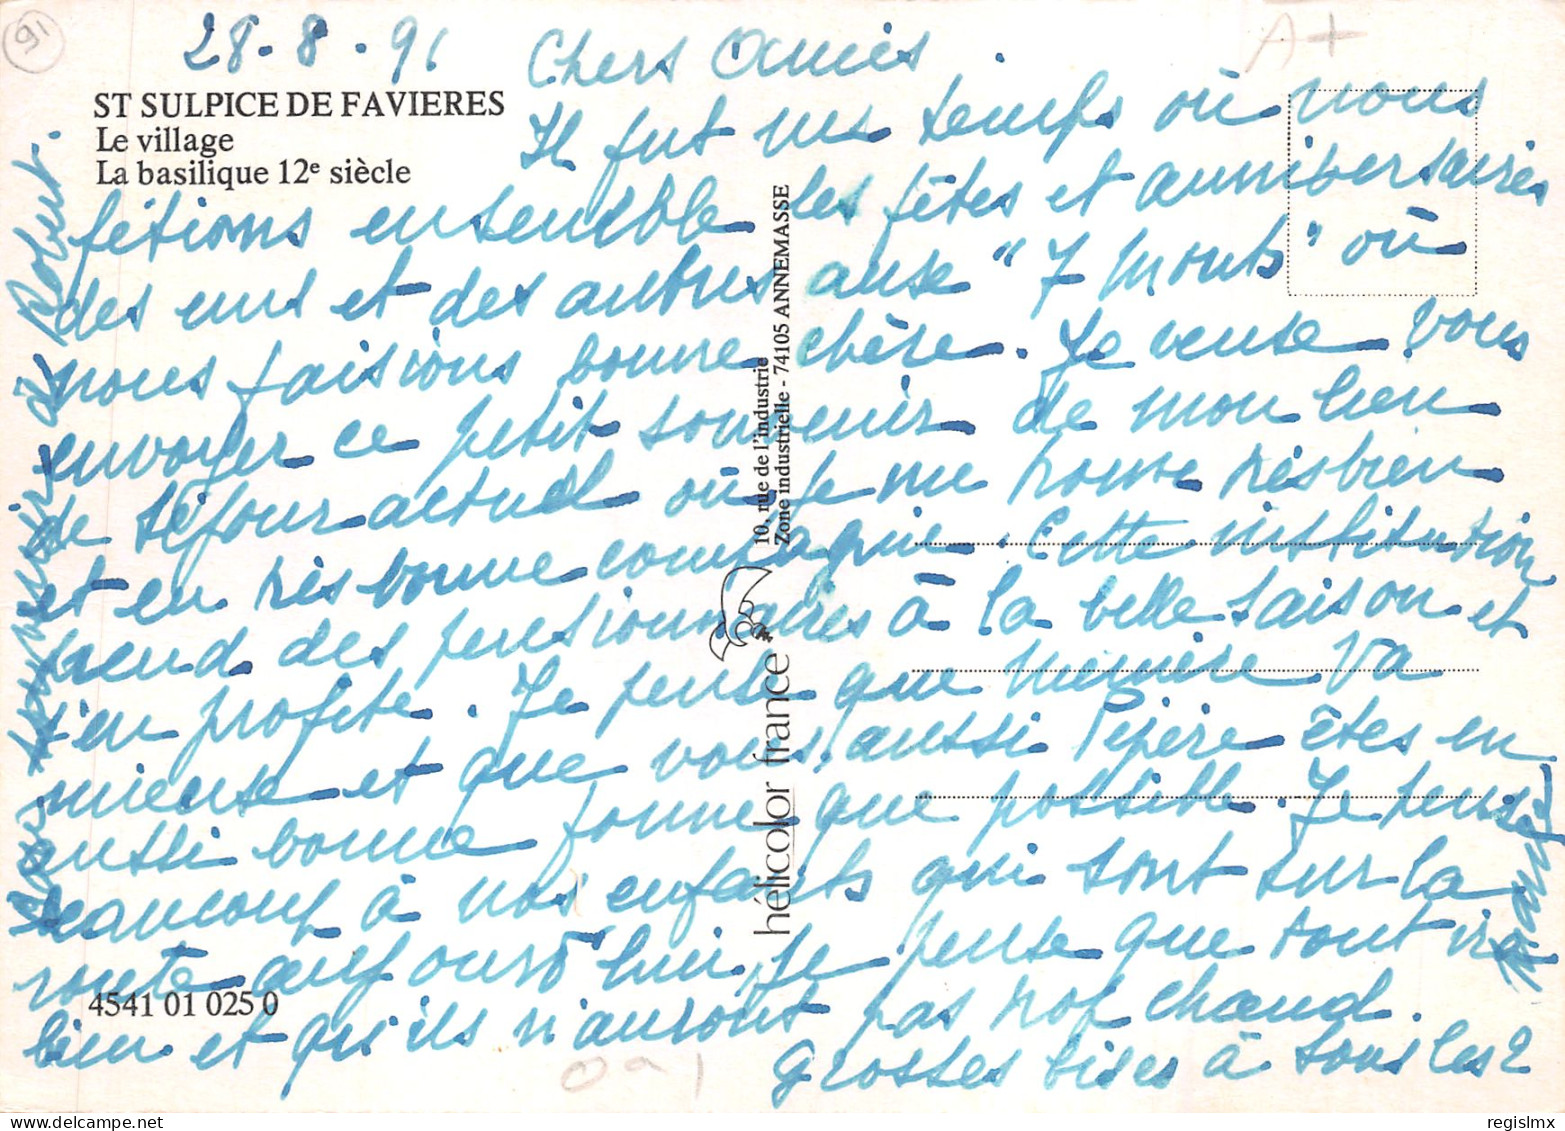 91
28.8.91 Chers Amies.
A+
ST SULPICE DE FAVIERES
Le village
La basilique 12e siècle
Il fut un temps où nous
fêtions ensemble les fêtes et anniversaires
des uns et des autres aux "7 Monts" où
nous faisions bonne chère. Je veux vous
envoyer ce petit souvenir de mon lieu
de séjour actuel où je me trouve très bien
et en très bonne compagnie. Cette institution
prend des pensionnaires à la belle saison et
j'en profite. Je pense que mémère va
mieux et que vous, aussi Pépère êtes en
aussi bonne forme que possible. Je pense
beaucoup à nos enfants qui sont sur la
route aujourd'hui. Je pense que tout ira
bien et qu'ils n'auront pas trop chaud.
grosses bises à tous les 2
Bon souvenir à Robert.
hélicolor france
10, rue de l'industrie
Zone industrielle - 74105 ANNEMASSE
4541 01 025 0
regislmx